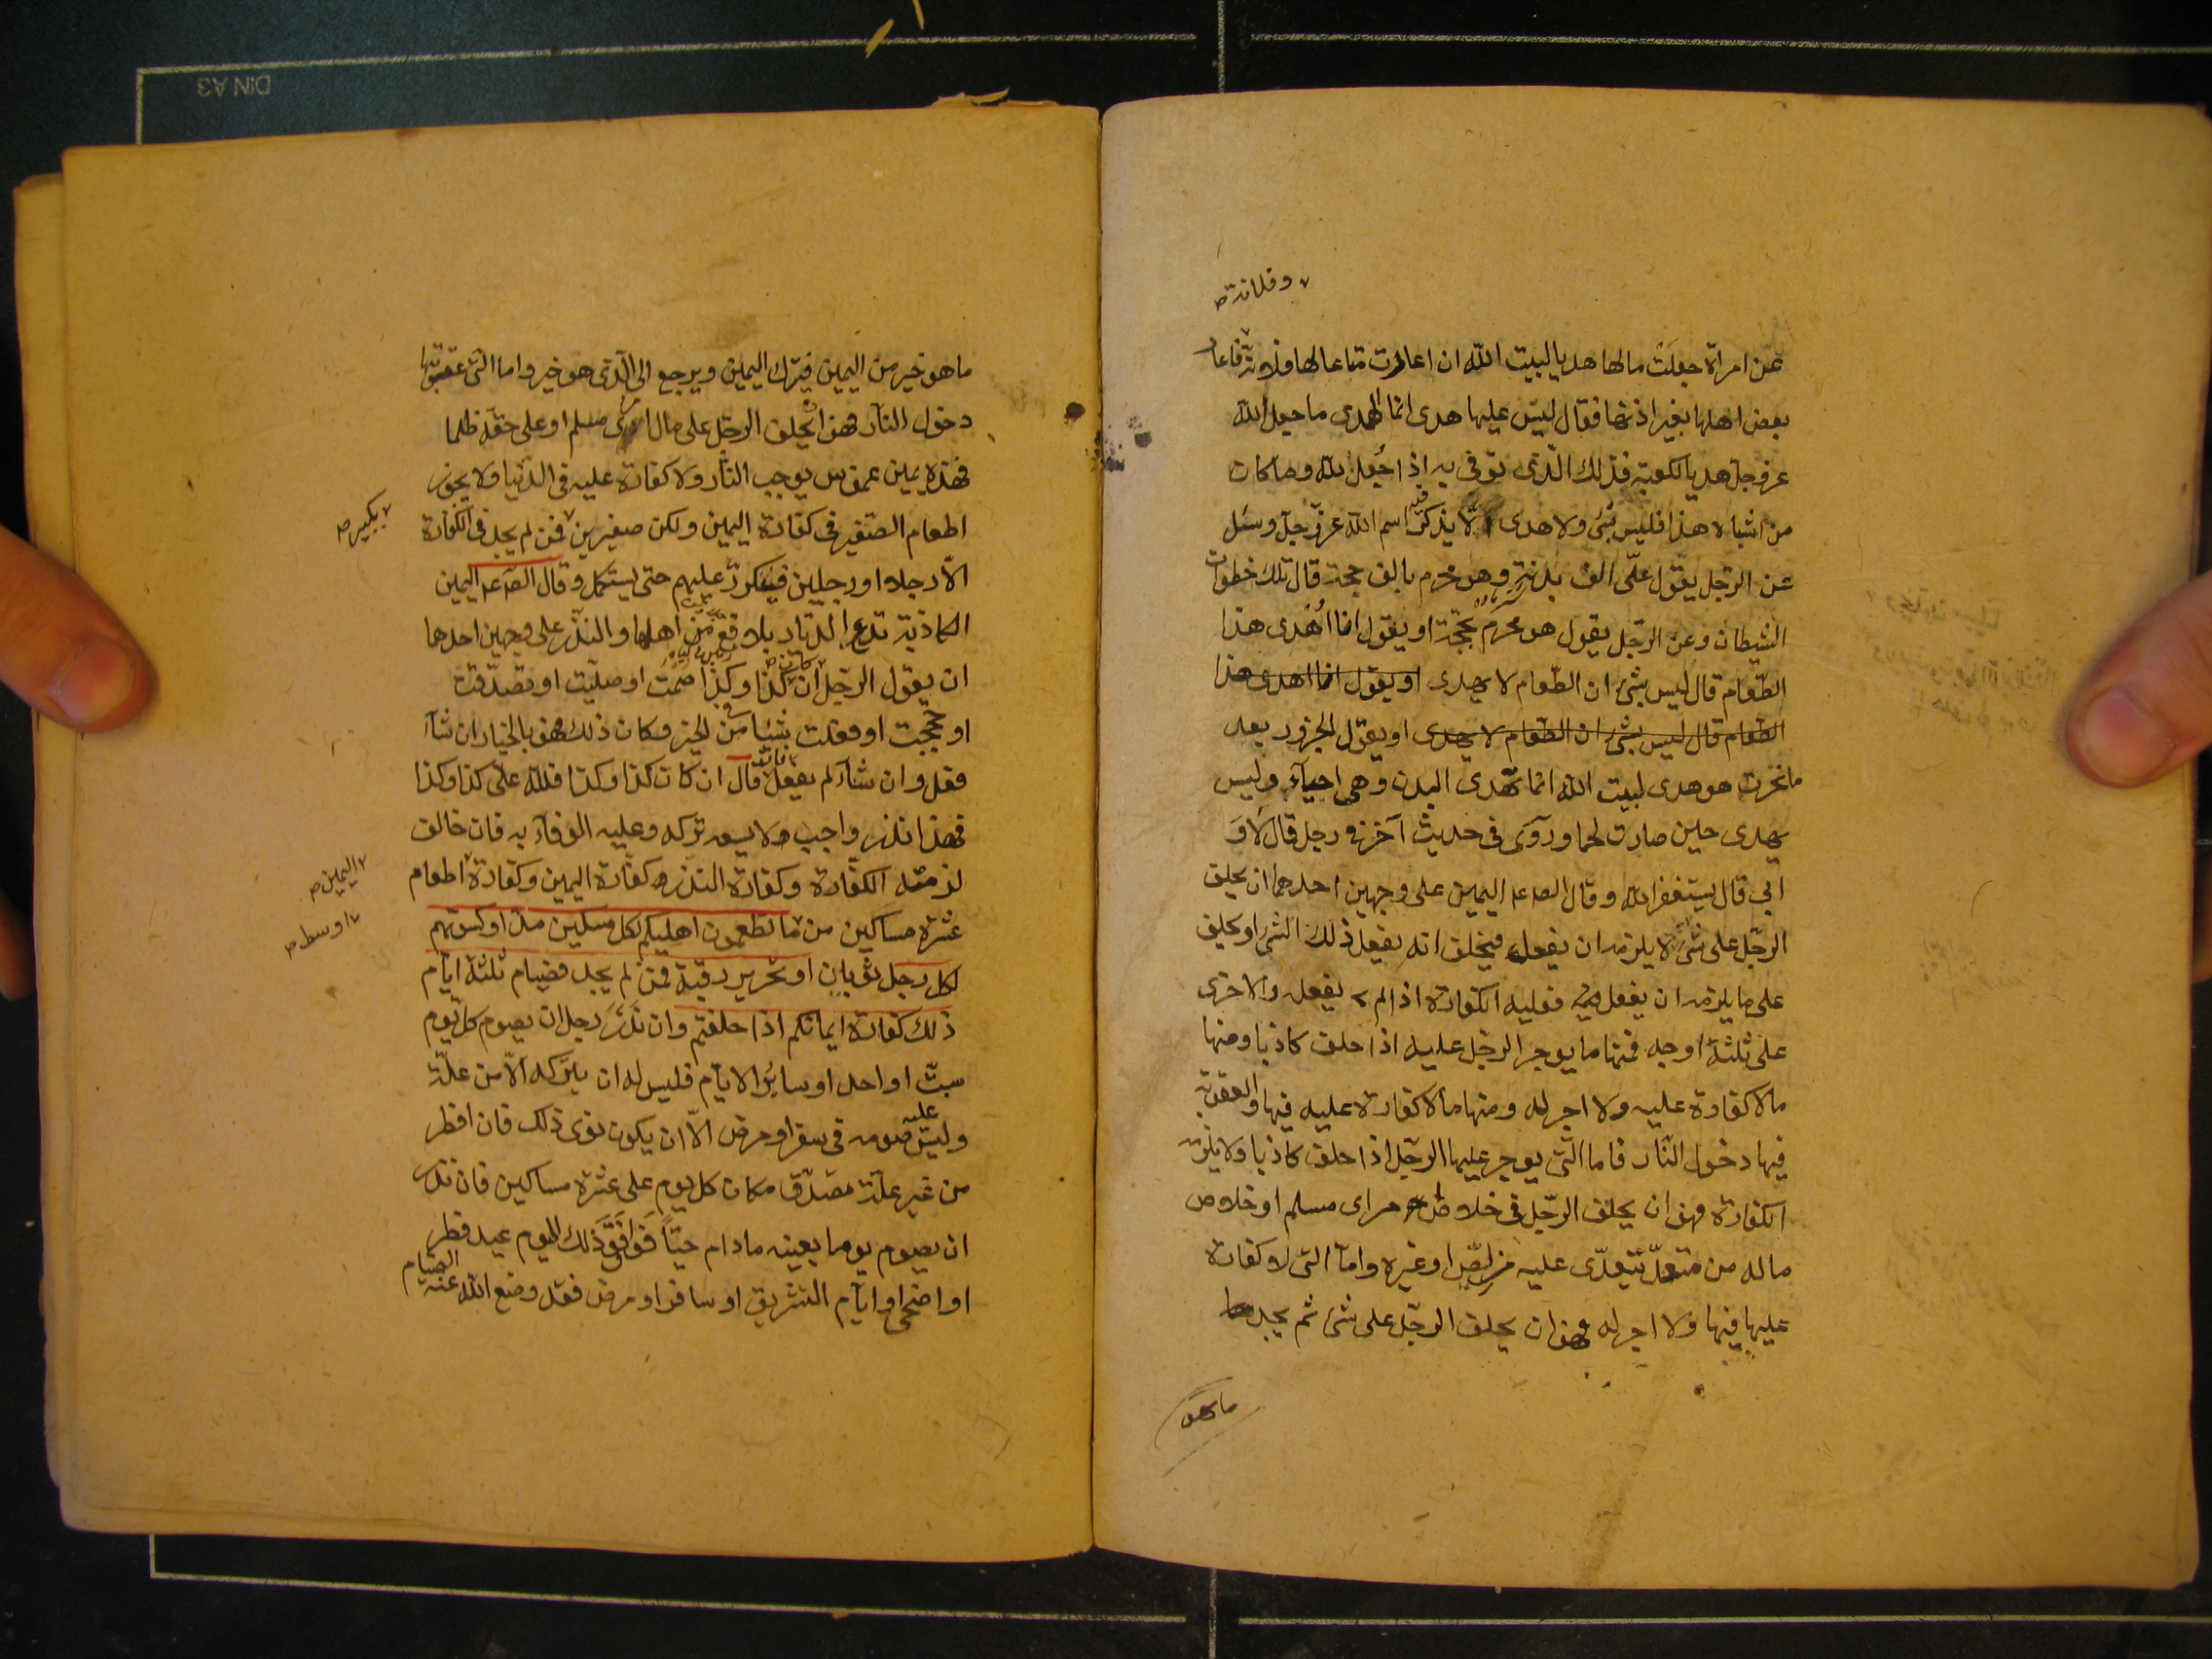 وفلانة ص
عن امراة جعلت مالها هديا لبيت الله ان اعارت متاعا لها فلانة فاعار
بعض اهلها بغير اذنها فقال ليس عليها هدى انما الهدى ما جعل الله
عز وجل هديا لكعبة فذلك الذى يوفى به اذا جعل لله وما كان
من اشباه هذا فليس بشئ ولا هدى لا يذكر فيه اسم الله عز وجل وسئل
عن الرجل يقول على الف بدنة وهو محرم بالف حجة قال تلك خطوات
الشيطان وعن الرجل يقول هو محرم بحجة او يقول انا اهدى هذا
الطعام قال ليس بشئ ان الطعام لا يهدى او يقول انا اهدى هذا
الطعام قال ليس بشئ ان الطعام لا يهدى او يقول الجزور بعد
ما نحرت هو هدى لبيت الله انما تهدى البدن وهى احياء وليس
يهدى حين صارت لحما وروى فى حديث آخر فى رجل قال لا و
ابى قال يستغفر الله وقال الص ع اليمين على وجهين احدهما ان يحلف
الرجل على شئ لا يلزمه ان يفعل فيحلف انه يفعل ذلك الشئ او يحلف
على ما يلزمه ان يفعل فعليه الكفارة اذا لم يفعله والاخرى
على ثلثة اوجه فمنها ما يوجر الرجل عليه اذا حلف كاذبا ومنها
ما لا كفارة عليه ولا اجر له ومنها ما لا كفارة عليه فيها والعقوبة
فيها دخول النار فاما التى يوجر عليها الرجل اذا حلف كاذبا ولا يلزمه
الكفارة فهو ان يحلف الرجل فى خلاص امراى مسلم او خلاص
ماله من متعد يتعدى عليه من لص او غيره واما التى لا كفارة
عليها فيها ولا اجر له فهو ان يحلف الرجل على شئ ثم يجد
ما هو
ما هو خير من اليمين فيترك اليمين ويرجع الى الذى هو خير واما التى عقوبتها
دخول النار فهو ان يحلف الرجل على مال امرئ مسلم او على حقه ظلما
فهذه يمين غموس يوجب النار ولا كفارة عليه فى الدنيا ولا يجوز
اطعام الصغير فى كفارة اليمين ولكن صغيرين فمن لم يجد فى الكفارة
بكبير ص
الا رجلا او رجلين فيكرر عليهم حتى يستكمل وقال الص ع اليمين
الكاذبة تدع الديار بلاقع من اهلها والنذر على وجهين احدهما
ان يقول الرجل ان كان كذا وكذا صمت او صليت او تصدقت
او حججت او فعلت شيئا من الخير وكان ذلك فهو بالخيار ان شآء
فعل وان شآء لم يفعل فان قال ان كان كذا وكذا فلله على كذا وكذا
فهذا نذر واجب ولا يسعه تركه وعليه الوفآء به فان خالف
لزمته الكفارة وكفارة النذر كفارة اليمين وكفارة اطعام
اليمين ص
عشرة مساكين من ما تطعمون اهليكم لكل مسكين مد او كسوتهم
اوسط ص
لكل رجل ثوبان او تحرير رقبة فمن لم يجد فصيام ثلثة ايام
ذلك كفارة ايمانكم اذا حلفتم وان نذر رجل ان يصوم كل يوم
سبت او احد او سائر الايام فليس له ان يتركه الا من علة
وليس عليه صومه فى سفر او مرض الا ان يكون نوى ذلك فان افطر
من غير علة تصدق مكان كل يوم على عشرة مساكين فان نذر
ان يصوم يوما بعينه مادام حيا فوافق ذلك اليوم عيد فطر
او اضحى او ايام التشريق او سافر او مرض فقد وضع الله عنه الصيام